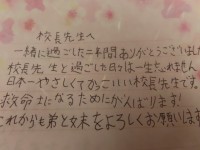 校長先生へ
一緒に過ごした二年間ありがとうございました
校長先生と過ごした日々は一生忘れません
日本一やさしくてかっこいい校長先生です。
救命士になるためにがんばります!
これからも弟と妹をよろしくお願いします